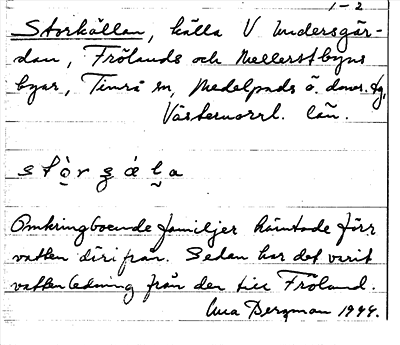 1-2
Storkällan, källa V Undersgår-
dan, Frölands och Mellerstbyns
byar, Timrå sn, Medelpads ö. doms. tg,
Västernorrl. län.
stòrgæla
Omkringboende familjer hämtade förr
vatten därifrån. Sedan har det varit
vattenledning från den till Fröland.
Bergman 1944.